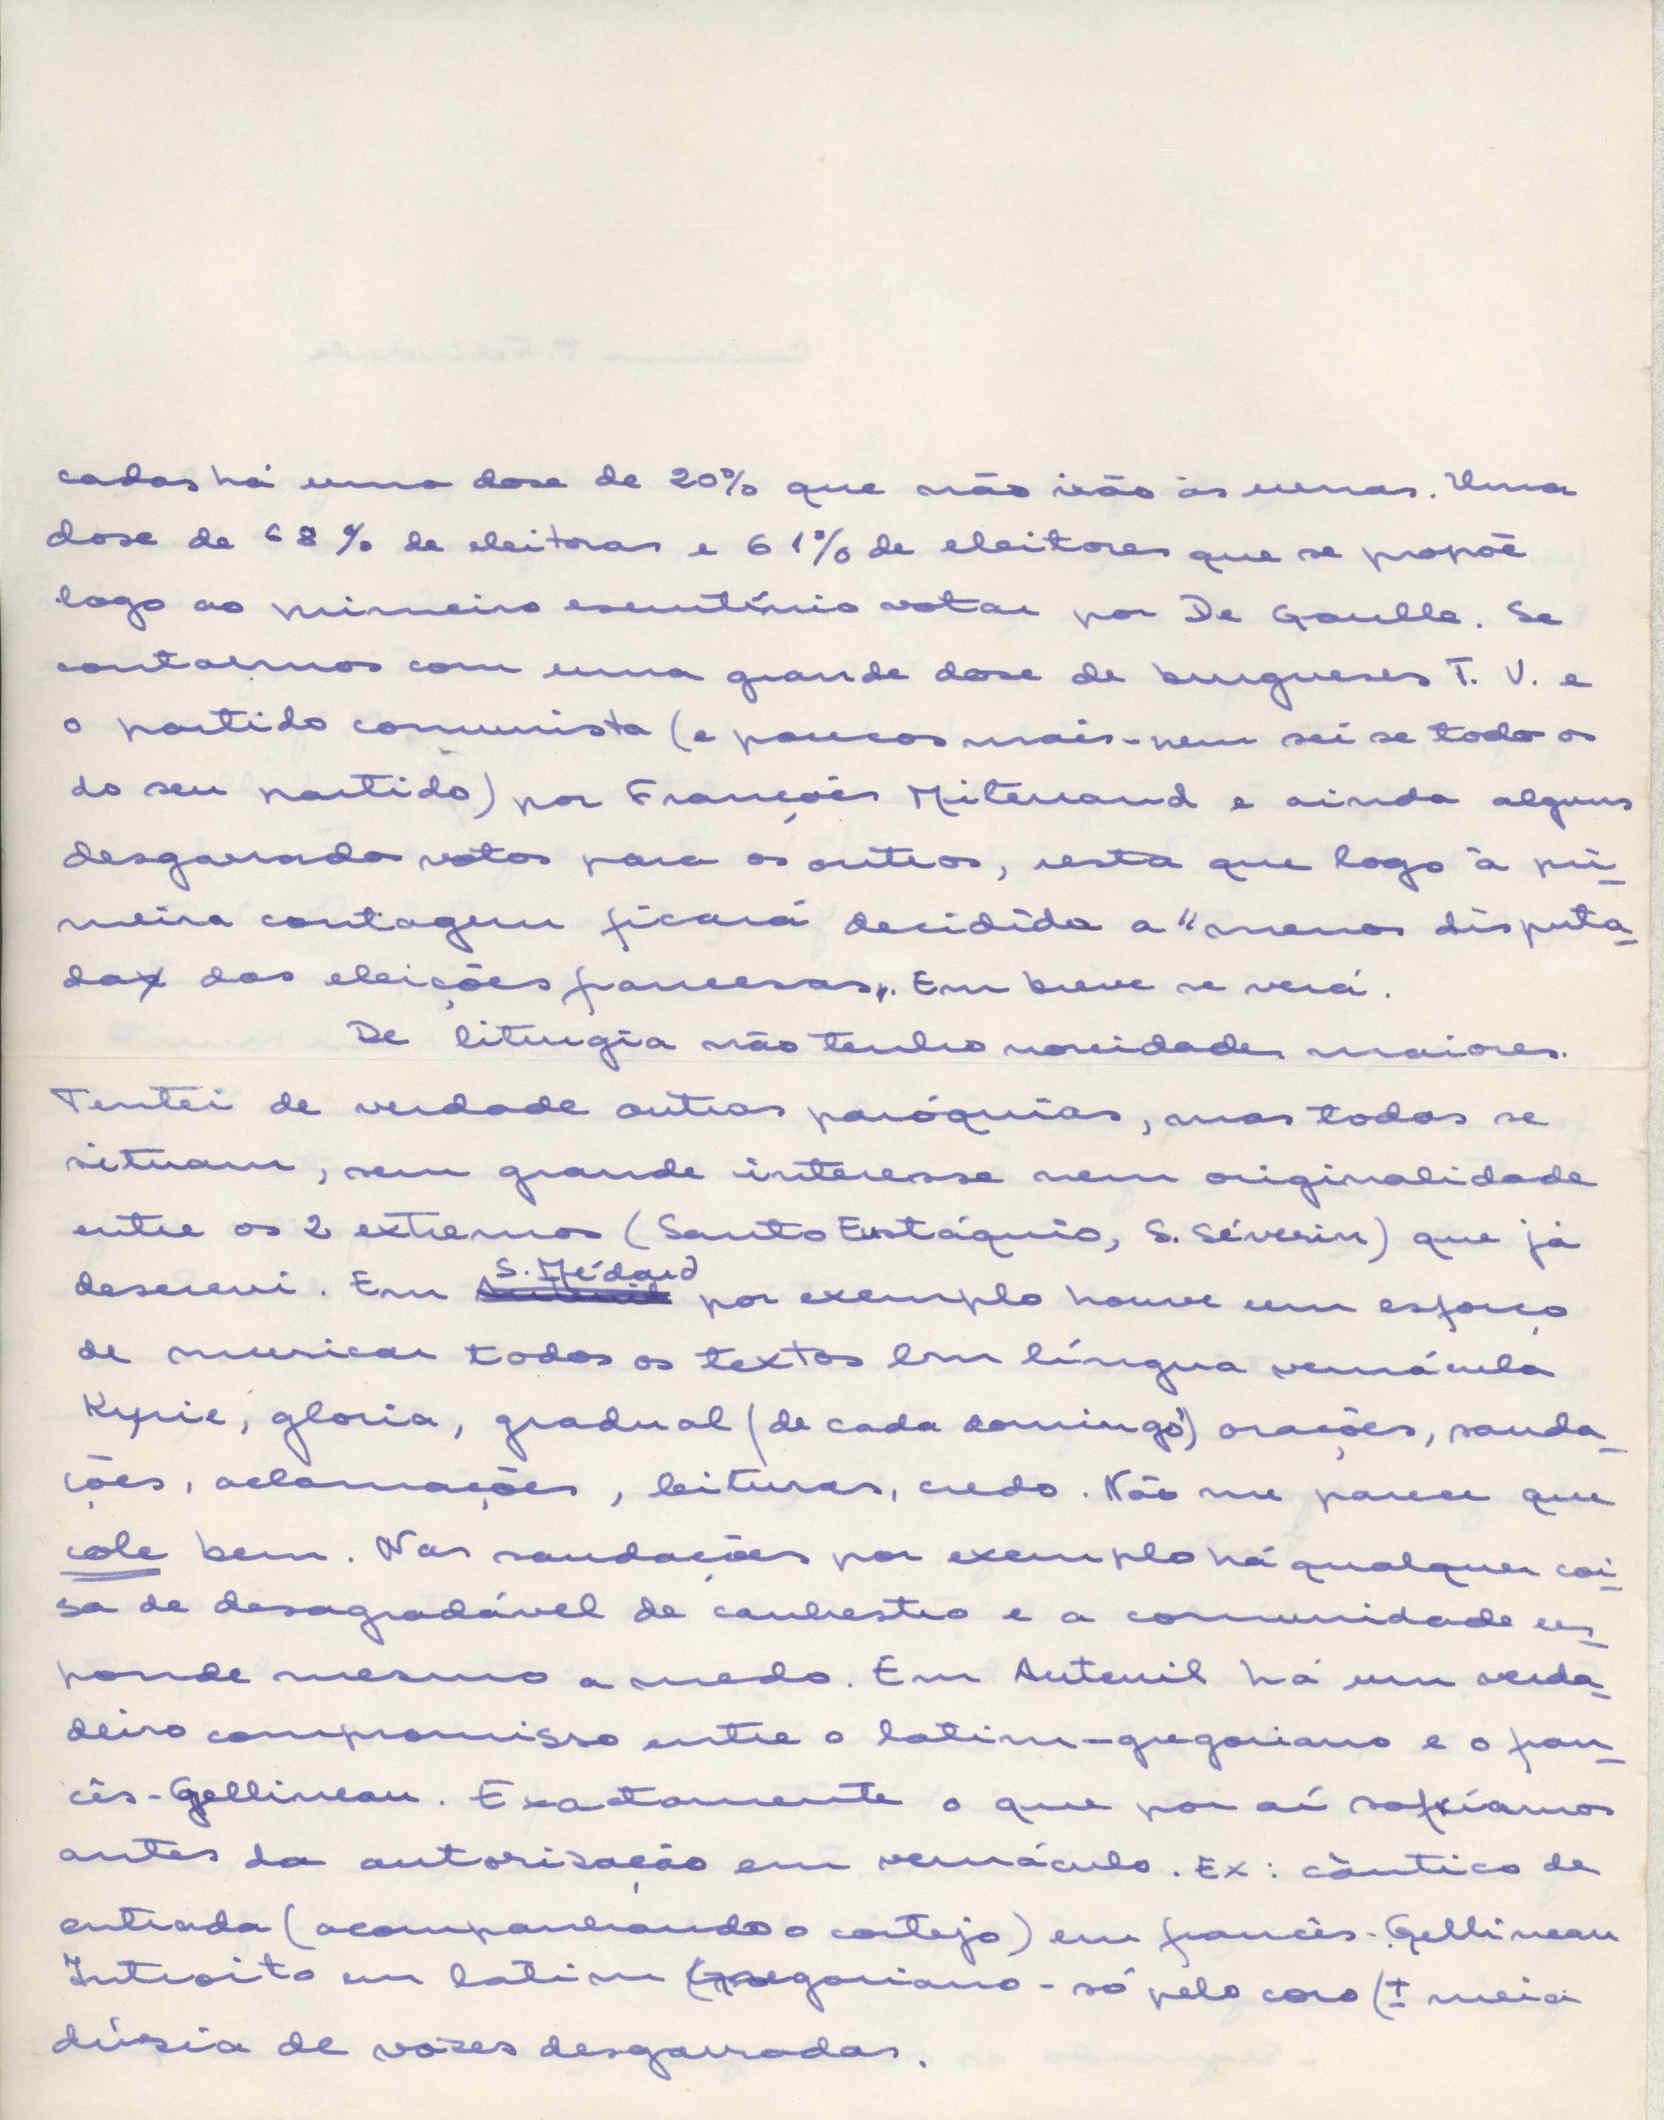 cadas há uma dose de 20% que não irão às urnas. Uma
dose de 68% de eleitoras e 61% de eleitores que se propõe
logo ao primeiro escrutínio votar por De Gaulle. Se
contarmos com uma grande dose de burgueses T. V. e
o partido comunista (e poucos mais - nem sei se todo os
do seu partido) por François Miterrand e ainda alguns
desgarrados votos para os outros, resta que logo à pri-
meira contagem ficará decidida a "menos disputa-
da das eleições francesas". Em breve se verá.
De liturgia não tenho novidades maiores.
Tentei de verdade outras paróquias, mas todas se
situam, sem grande interesse nem originalidade
entre os 2 extremos (Santo Eustáquio, S. Séverin) que já
descrevi. Em S. Médard por exemplo houve um esforço
de musicar todos os textos em língua vernácula
Kyrie, gloria, gradual (de cada domingo) orações, sauda-
ções, aclamações, leituras, credo. Não me parece que
cole bem. Nas saudações por exemplo há qualquer coi-
sa de desagradável de canhestro e a comunidade res-
ponde mesmo a medo. Em Auteuil há um verda-
deiro compromisso entre o latim-gregoriano e o fran-
cês-Gellineau. Exactamente o que por aí sofríamos
antes da autorização em vernáculo. Ex: cântico de
entrada (acompanhando o cortejo) em francês-Gellineau
Introito em latim Gregoriano - só pelo coro (± meia
dúzia de vozes desgarradas.